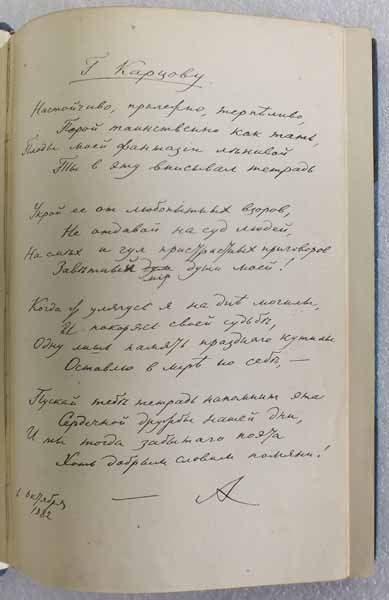 Г Карцову.
Настойчиво, прилежно, терпѣливо,
Порой таинственно какъ тать,
Плоды моей фантазіи лѣнивой
Ты в эту вписывал тетрадь
Укрой ее от любопытных взоров,
Не отдавай на суд людей,
На смѣх и гул пристрастных приговоров
Завѣтный мір души моей!
Когда улягусь я на днѣ могилы,
И покорясь своей судьбѣ,
Одну лишь память праздного кутилы
Оставлю в мірѣ по себѣ, —
Пускай тебѣ тетрадь напомнит эта
Сердечной дружбы нашей дни,
И ты тогда забытаго поэта
Хоть добрым словом помяни!
6 Октября
1882
— А